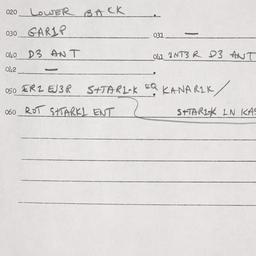 020 LOWER BACK
030 GAR1P 031 —
040 D3 ANT 041 INT3R D3 ANT
042 —
050 ER2 EN3R STAR1-K KANAR1K/
060 ROT STARK1 ENT STAR1K IN KAS